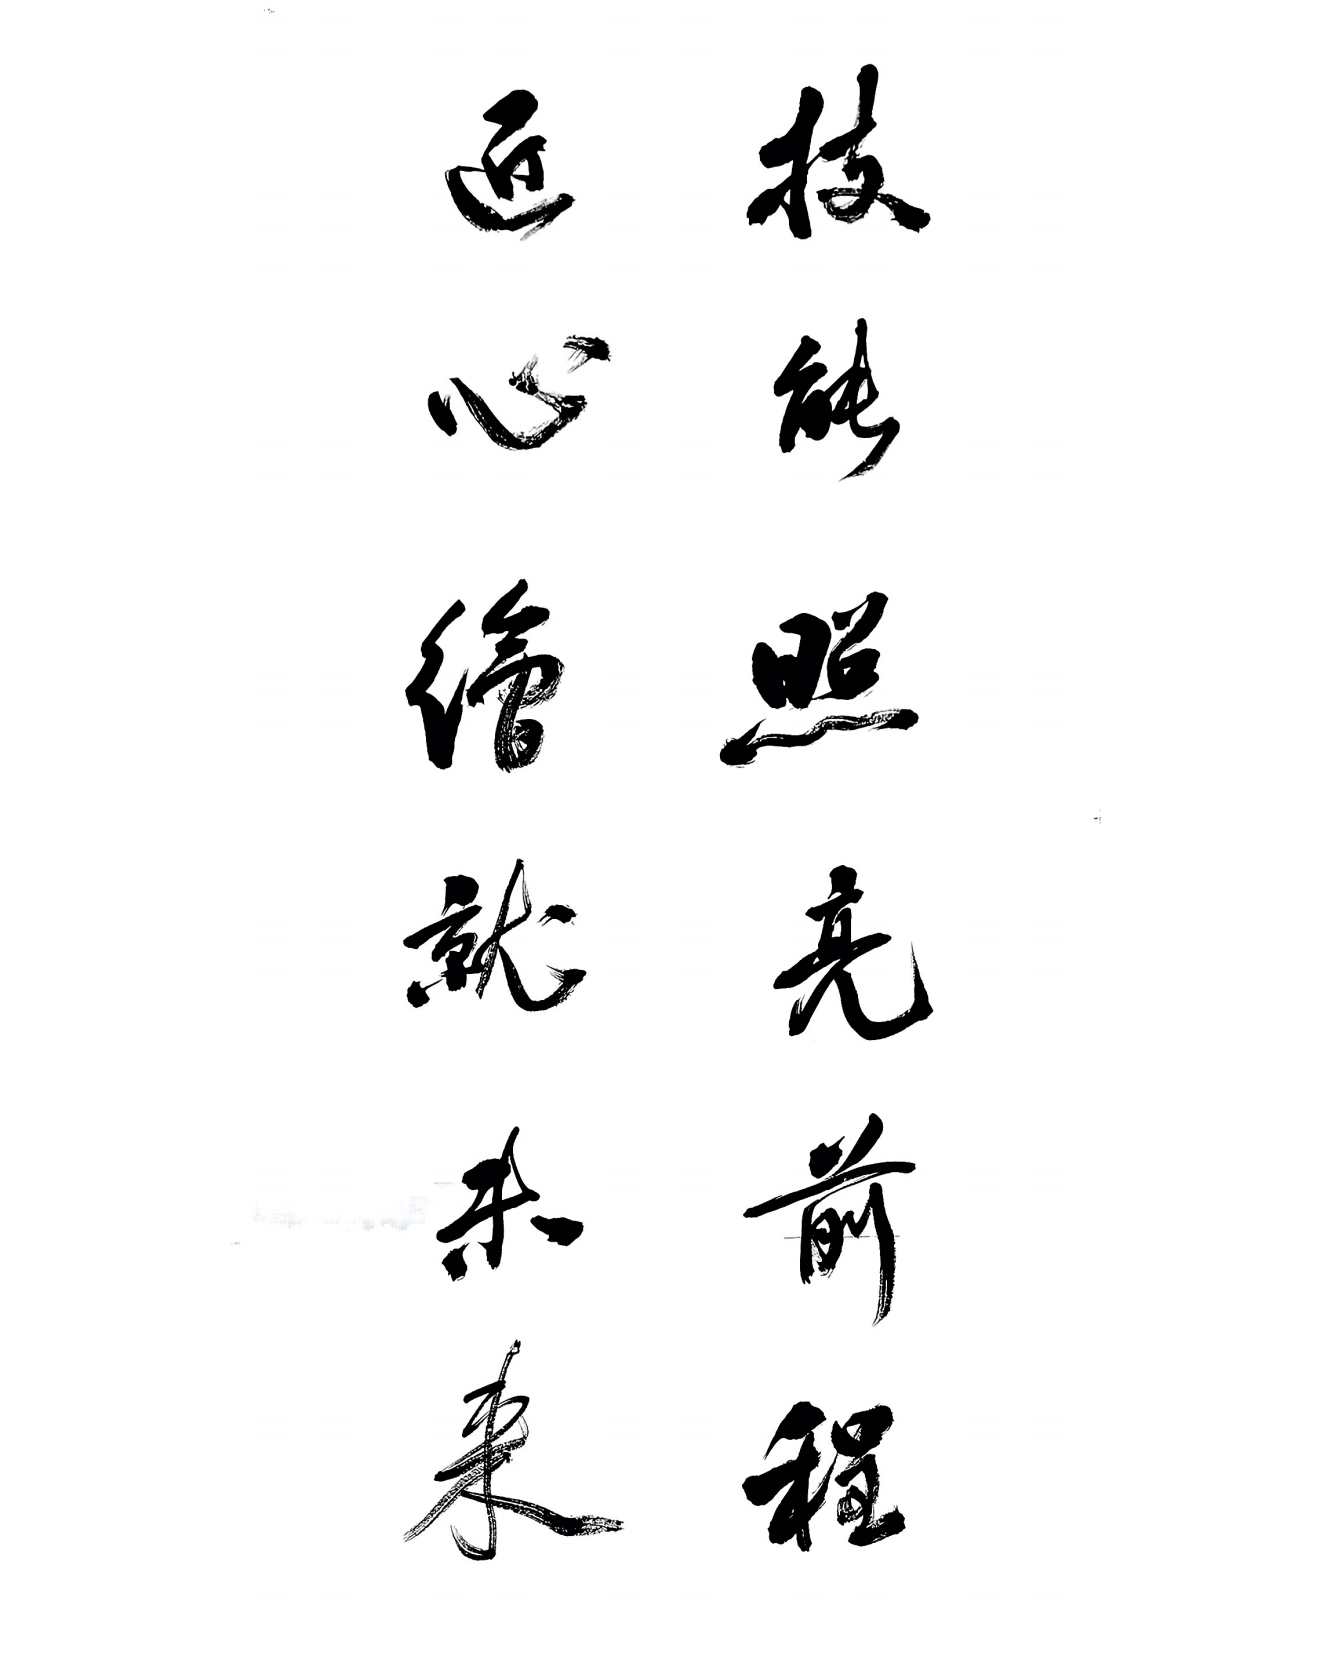 技能照亮前程
匠心繪就未来